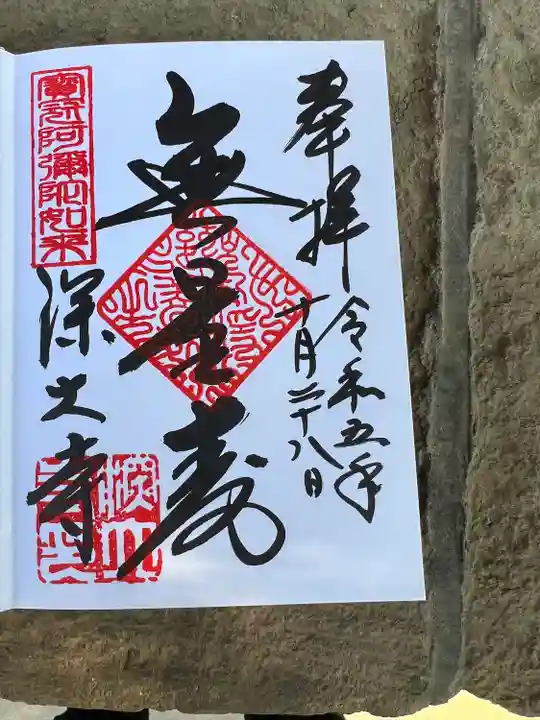 奉拝
令和五年
十月二十八日
無量寿
寳冠阿彌陀如来
深大寺